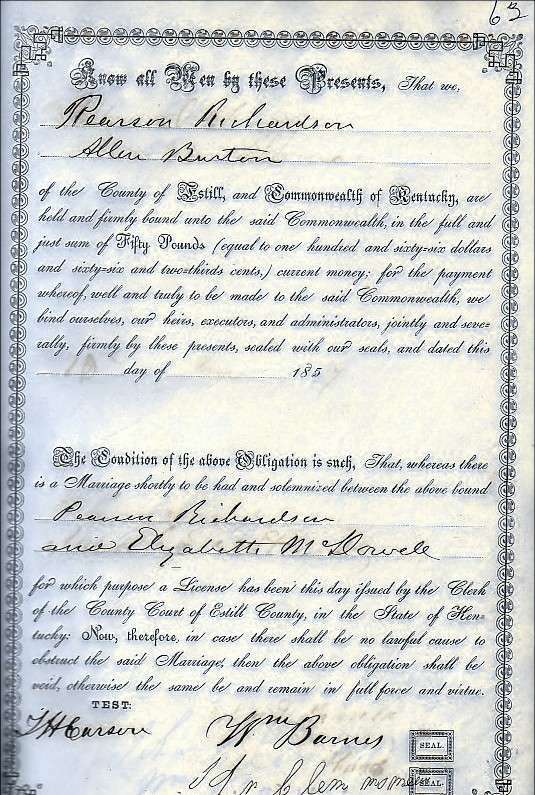 62
Know all Men by these Presents, That we,
Pearson Richardson
Allen Burton
of the County of Estill, and Commonwealth of Kentucky, are
held and firmly bound unto the said Commonwealth, in the full and
just sum of Fifty Pounds (equal to one hundred and sixty-six dollars
and sixty-six and two-thirds cents,) current money; for the payment
whereof, well and truly to be made to the said Commonwealth, we
bind ourselves, our heirs, executors, and administrators, jointly and seve-
rally, firmly by these presents, sealed with our seals, and dated this
day of 185
The Condition of the above Obligation is such, That, whereas there
is a Marriage shortly to be had and solemnized between the above bound
Pearson Richardson
and Elizabeth McDowell
for which purpose a License has been this day issued by the Clerk
of the County Court of Estill County, in the State of Ken-
tucky: Now, therefore, in case there shall be no lawful cause to
obstruct the said Marriage, then the above obligation shall be
void, otherwise the same be and remain in full force and virtue.
TEST:
Wm Barnes SEAL.
SEAL.